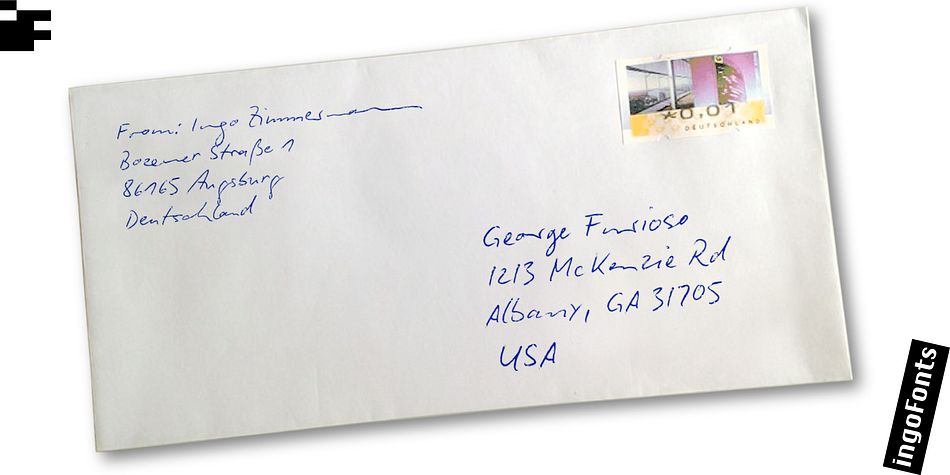 From: Ingo Zimmermann
Bozener Straße 1
86165 Augsburg
Deutschland
*0,01
DEUTSCHLAND
George Furioso
1213 McKenzie Rd
Albany, GA 31705
USA
ingoFonts